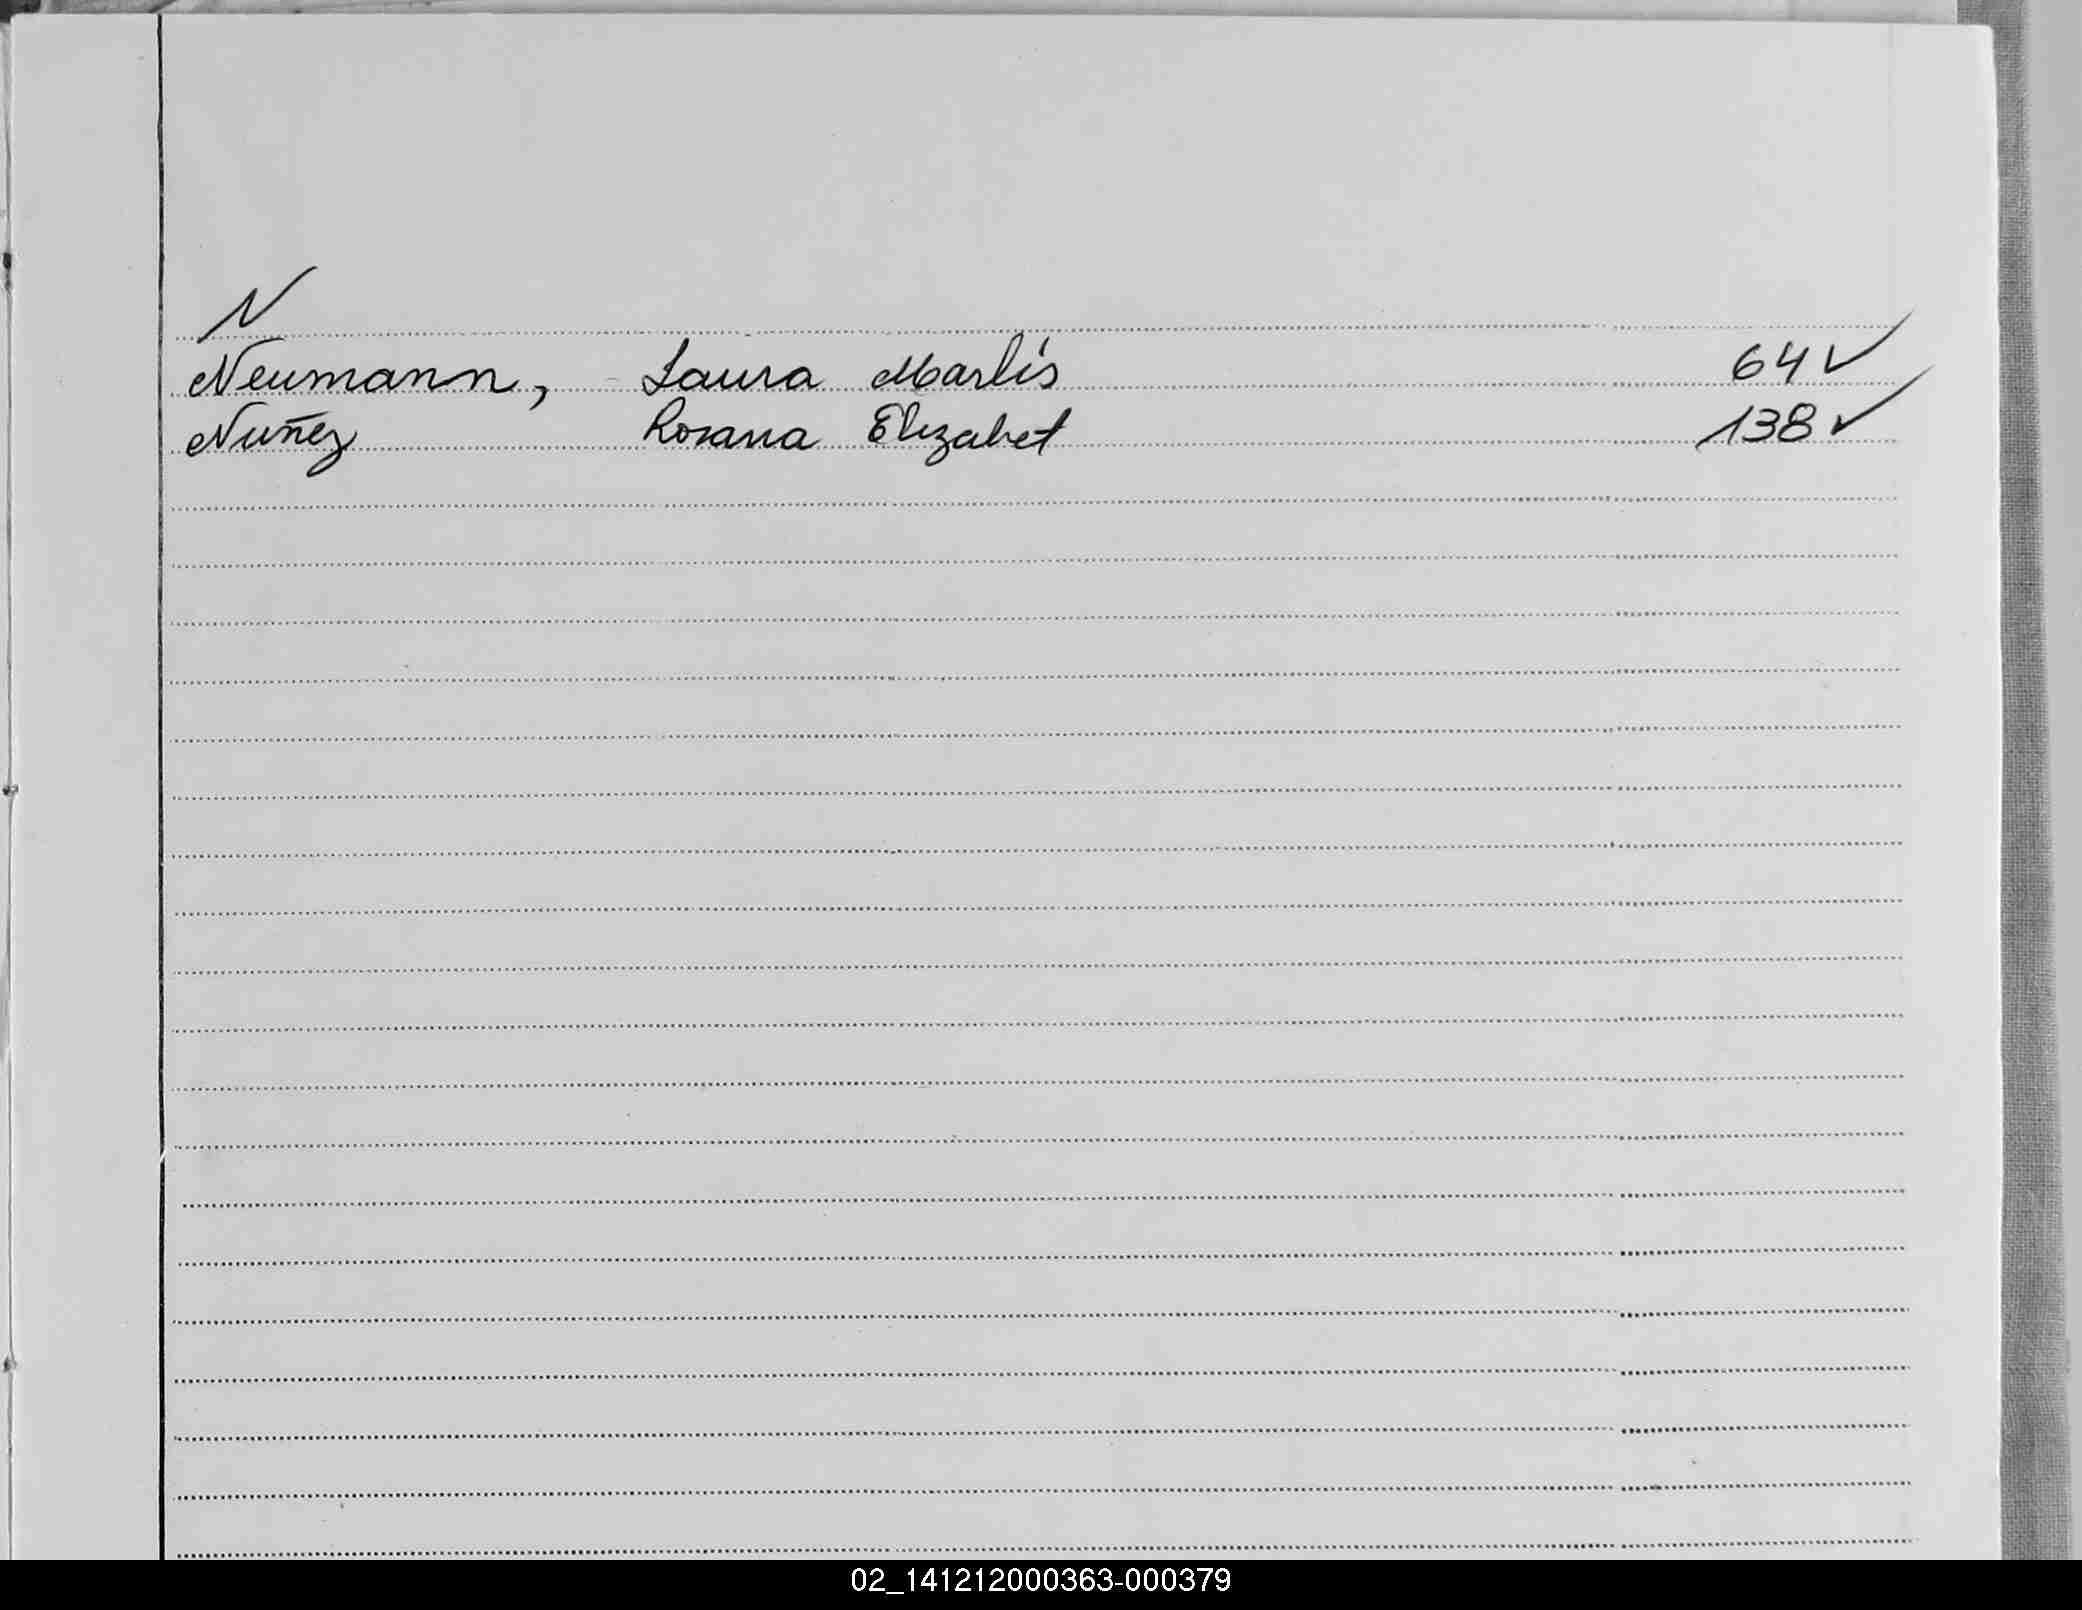 N
Neumann, Laura Marlís 64 ✓
Nuñez Roxana Elizabet 138 ✓
02_141212000363-000379